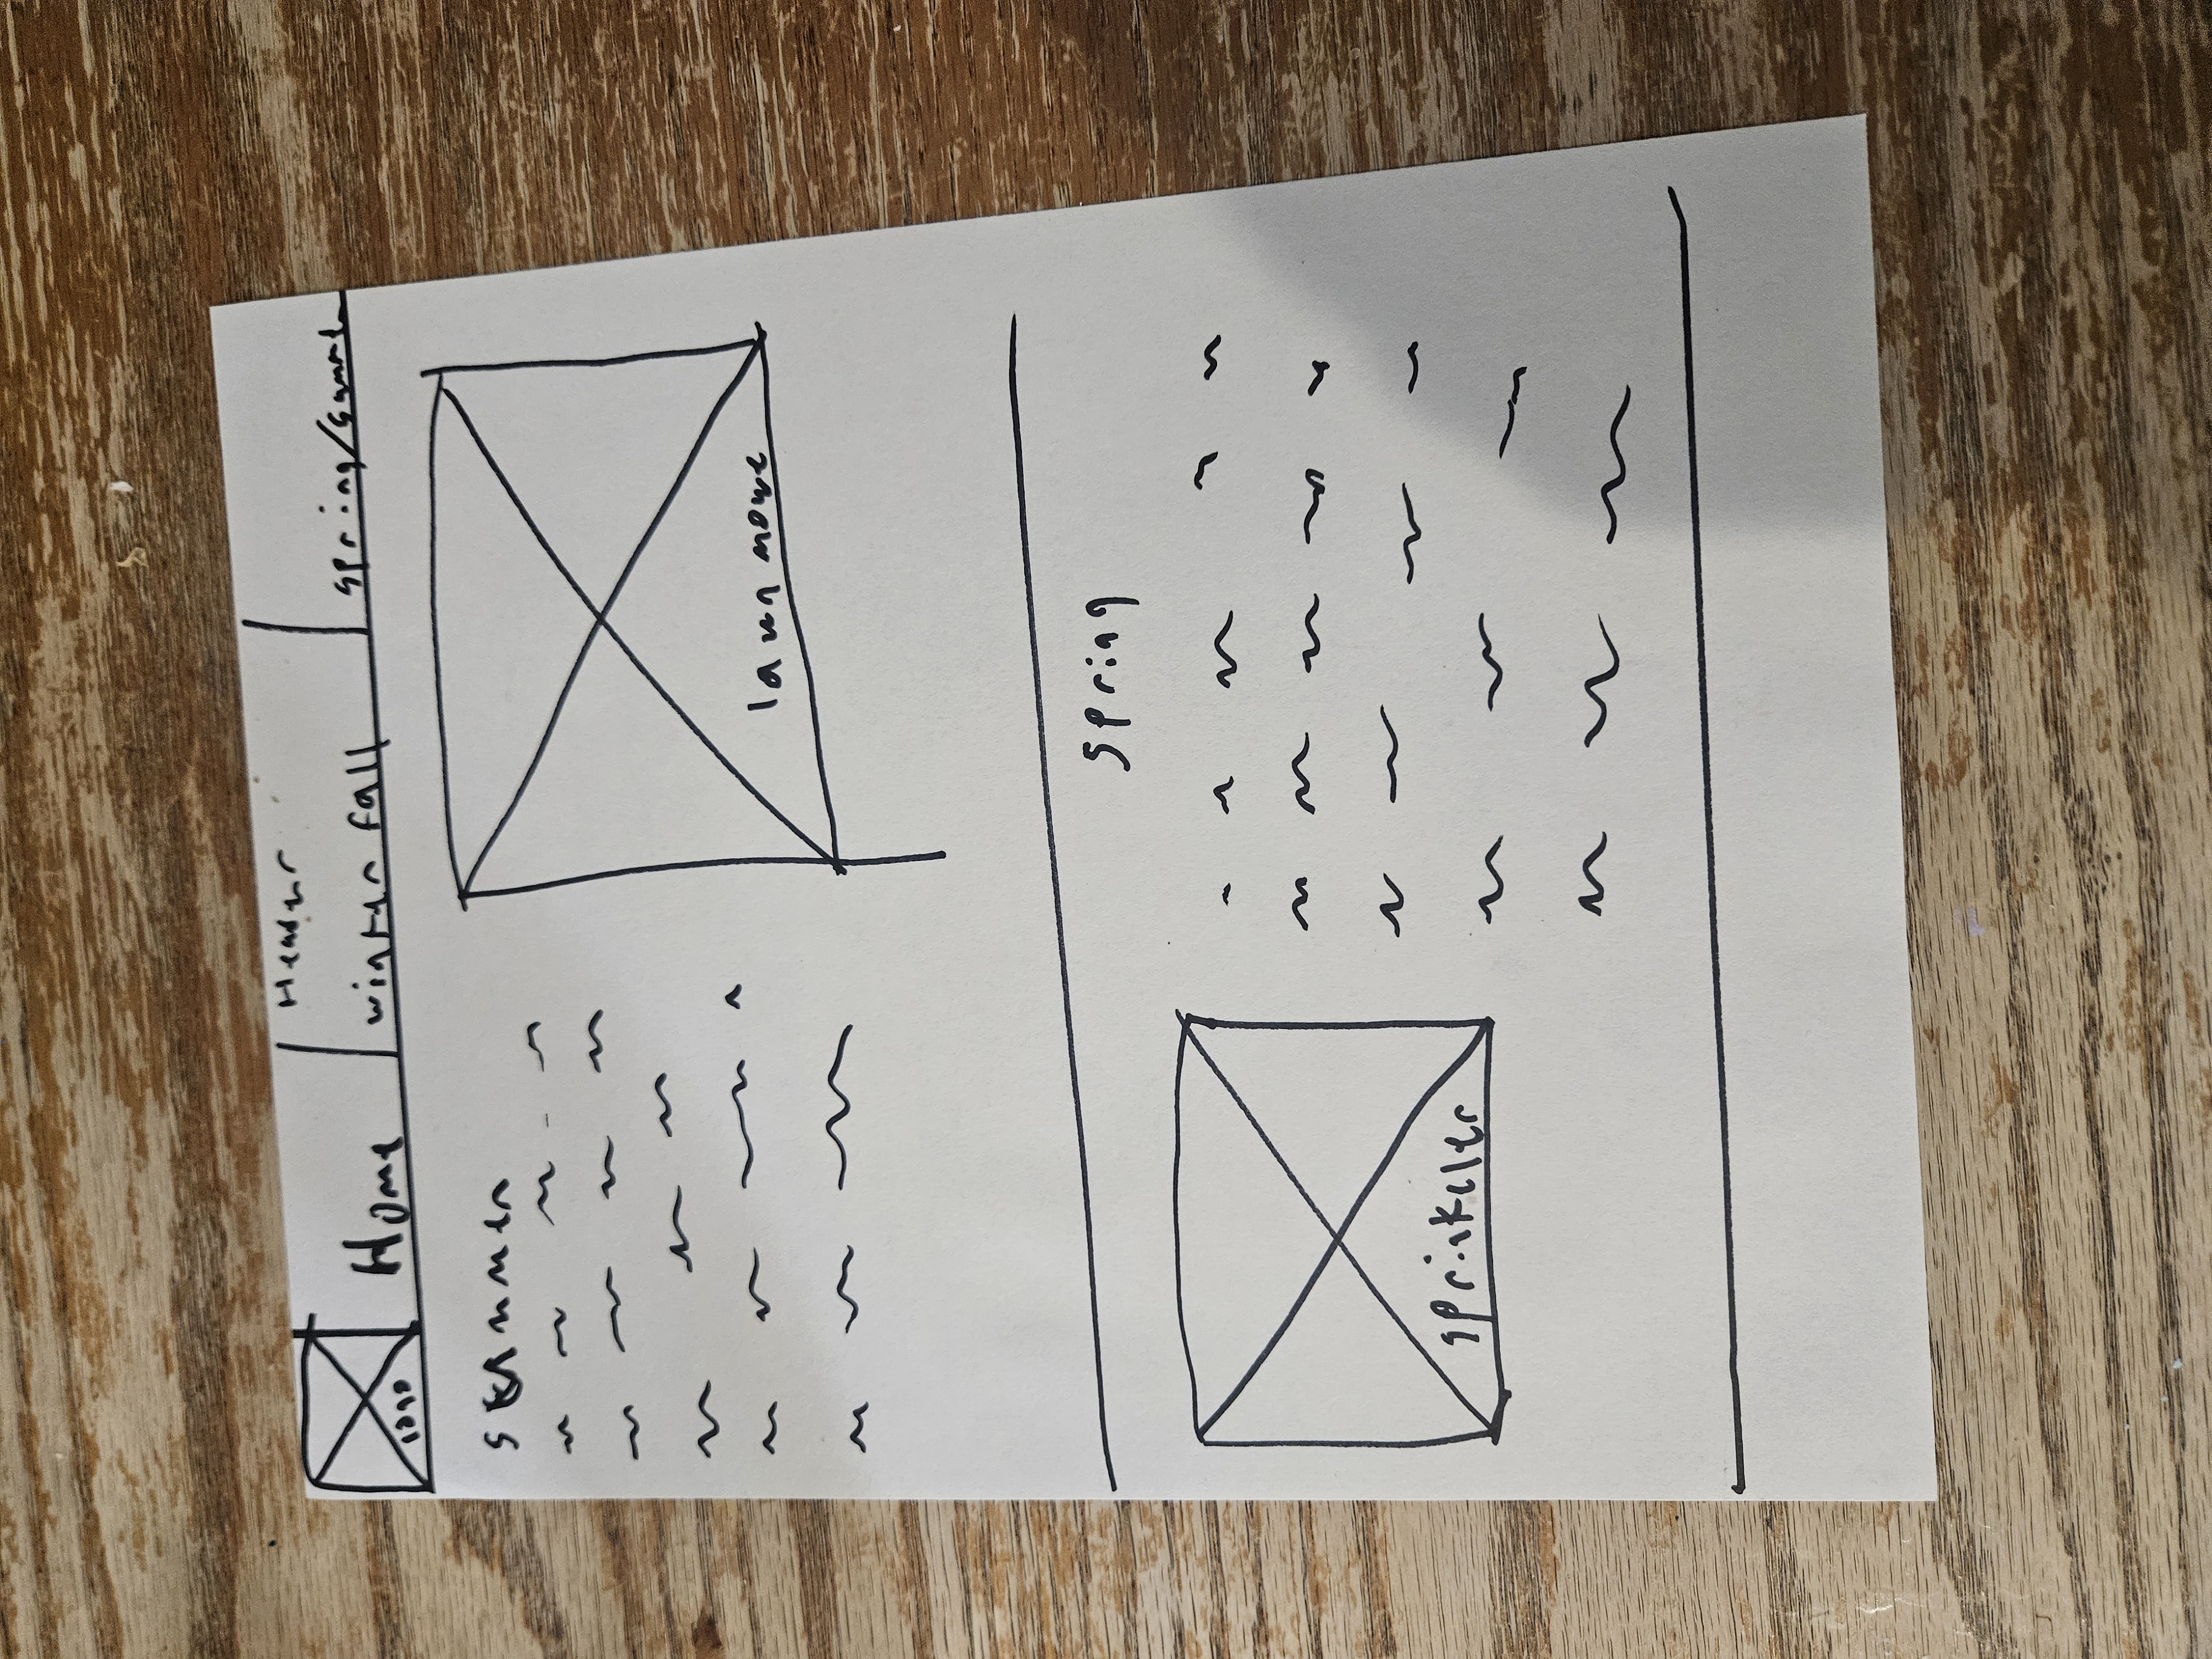 Header
logo
Home
winter fall
spring/summer
summer
lawn mowe
spring
sprinkeler